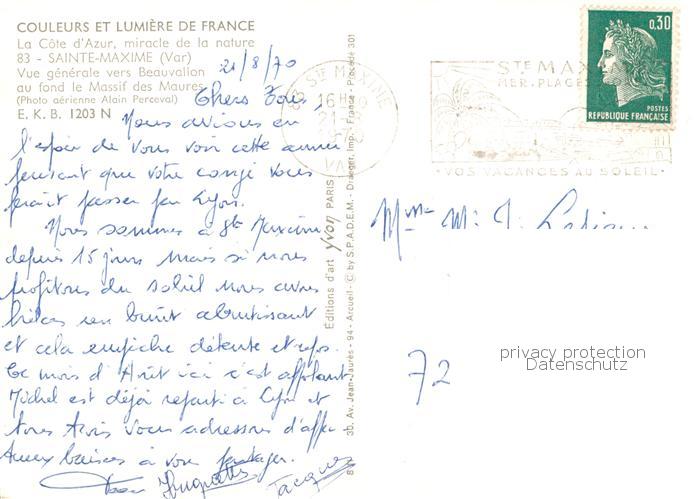 COULEURS ET LUMIÈRE DE FRANCE
La Côte d'Azur, miracle de la nature
83 - SAINTE-MAXIME (Var)
Vue générale vers Beauvallon
au fond le Massif des Maures
(Photo aérienne Alain Perceval)
E. K. B. 1203 N
21/8/70
Chers Tous,
Nous avions eu
l'espoir de vous voir cette année
pensant que votre congé vous
ferait passer par Lyon.
Nous sommes à Ste Maxime
depuis 15 jours mais si nous
profitons du soleil nous avons
hélas un bruit abrutissant
et cela empêche détente et repos.
Ce mois d'Août ici c'est affolant
Michel est déjà reparti à Lyon et
tous trois vous adressons d'affec
tueux baisers à vous partager.
Huguette
Jacques
Editions d'art yvon PARIS
3b. Av. Jean-Jaurès - 94 - Arcueil - © by S.P.A.D.E.M. - Draeger, Imp. France - Procédé 301
83 STE MAXIME
16H
21-8
VAR
STE MAXIME
MER. PLAGE
• VOS VACANCES AU SOLEIL •
0,30
POSTES
REPUBLIQUE FRANÇAISE
Mme M. J.
72
privacy protection
Datenschutz